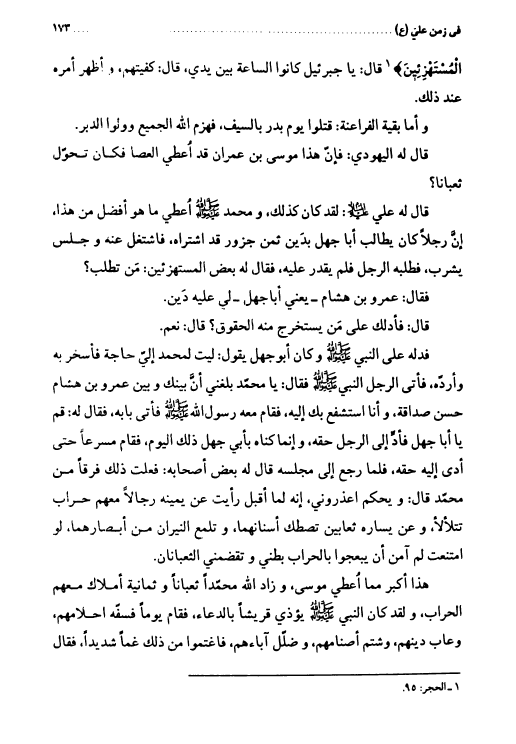 في زمن علي (ع) ............................................................ ١٧٣
الْمُسْتَهْزِئِينَ﴾١ قال: يا جبرئيل كانوا الساعة بين يدي، قال: كفيتهم، و أظهر أمره
عند ذلك.
و أما بقية الفراعنة: قتلوا يوم بدر بالسيف، فهزم الله الجميع وولوا الدبر.
قال له اليهودي: فإنّ هذا موسى بن عمران قد اُعطي العصا فكان تـحوّل
ثعبانا؟
قال له علي ﷷ: لقد كان كذلك، و محمد ﷺ اُعطي ما هو أفضل من هذا،
إنَّ رجلاً كان يطالب أبا جهل بدَين ثمن جزور قد اشتراه، فاشتغل عنه و جـلس
يشرب، فطلبه الرجل فلم يقدر عليه، فقال له بعض المستهزئين: مَن تطلب؟
فقال: عمرو بن هشام ـ يعني أباجهل ـ لي عليه دَين.
قال: فأدلك على مَن يستخرج منه الحقوق؟ قال: نعم.
فدله على النبي ﷺ و كان أبوجهل يقول: ليت لمحمد إليّ حاجة فأسخر به
وأردّه، فأتى الرجل النبي ﷺ فقال: يا محمّد بلغني أنَّ بينك و بين عمرو بن هشام
حسن صداقة، و أنا استشفع بك إليه، فقام معه رسول الله ﷺ فأتى بابه، فقال له: قم
يا أبا جهل فأدِّ إلى الرجل حقه، و إنما كناه بأبي جهل ذلك اليوم، فقام مسرعاً حتى
أدى إليه حقه، فلما رجع إلى مجلسه قال له بعض أصحابه: فعلت ذلك فرقاً مـن
محمّد قال: و يحكم اعذروني، إنه لما أقبل رأيت عن يمينه رجالاً معهم حـراب
تتلألأ، و عن يساره ثعابين تصطك أسنانهما، و تلمع النيران مـن أبـصارهما، لو
امتنعت لم آمن أن يبعجوا بالحراب بطني و تقضمني الثعبانان.
هذا أكبر مما اُعطي موسى، و زاد الله محمّداً ثعباناً و ثمانية أمـلاك مـعهم
الحراب، و لقد كان النبي ﷺ يؤذي قريشاً بالدعاء، فقام يوماً فسفّه احلامهم،
وعاب دينهم، وشتم أصنامهم، و ضلّل آباءهم، فاغتموا من ذلك غماً شديداً، فقال
١ ـ الحجر: ٩٥.